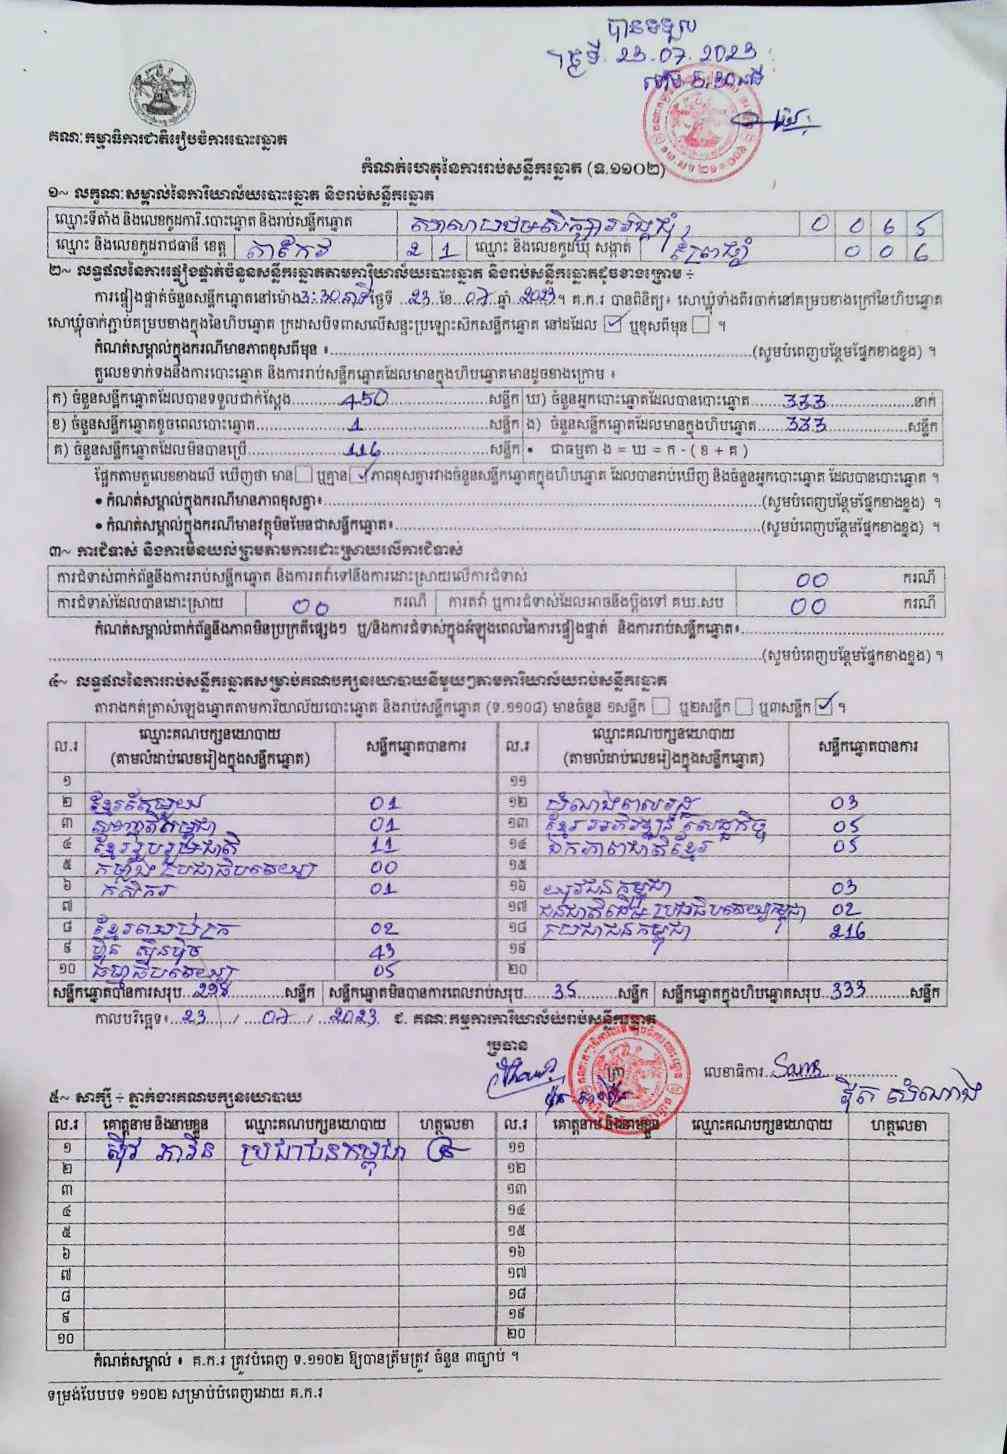 បានទទួល
ថ្ងៃទី 23.07.2023
គណៈកម្មាធិការជាតិរៀបចំការបោះឆ្នោត
កំណត់ហេតុនៃការរាប់សន្លឹកឆ្នោត (ទ.១១០២)
១~ លក្ខណៈសម្គាល់នៃការិយាល័យបោះឆ្នោត និងរាប់សន្លឹកឆ្នោត
ឈ្មោះទីតាំង និងលេខកូដការិ.បោះឆ្នោត និងរាប់សន្លឹកឆ្នោត សាលាបឋមសិក្សា 0 0 6 5
ឈ្មោះ និងលេខកូដរាជធានី ខេត្ត តាកែវ 2 1 ឈ្មោះ និងលេខកូដឃុំ សង្កាត់ 0 0 6
២~ លទ្ធផលនៃការផ្ទៀងផ្ទាត់ចំនួនសន្លឹកឆ្នោតតាមការិយាល័យបោះឆ្នោត និងរាប់សន្លឹកឆ្នោតដូចខាងក្រោម ÷
ការផ្ទៀងផ្ទាត់ចំនួនសន្លឹកឆ្នោតនៅម៉ោង 3:30នាទី ថ្ងៃទី 23 ខែ 07 ឆ្នាំ 2023 ។ គ.ក.រ បានពិនិត្យ៖ សោឃ្លុំទាំងពីរចាក់នៅគម្របខាងក្រៅនៃហិបឆ្នោត
សោឃ្លុំចាក់ភ្ជាប់គម្របខាងក្នុងនៃហិបឆ្នោត ក្រដាសបិទពាសលើសន្ទះប្រឡោះស៊កសន្លឹកឆ្នោត នៅដដែល ☑ ឬខុសពីមុន ☐ ។
កំណត់សម្គាល់ក្នុងករណីមានភាពខុសពីមុន ៖ (សូមបំពេញបន្ថែមផ្នែកខាងខ្នង) ។
តួលេខទាក់ទងនឹងការបោះឆ្នោត និងការរាប់សន្លឹកឆ្នោតដែលមានក្នុងហិបឆ្នោតមានដូចខាងក្រោម ៖
ក) ចំនួនសន្លឹកឆ្នោតដែលបានទទួលជាក់ស្តែង 450 សន្លឹក ឃ) ចំនួនអ្នកបោះឆ្នោតដែលបានបោះឆ្នោត 333 នាក់
ខ) ចំនួនសន្លឹកឆ្នោតខូចពេលបោះឆ្នោត 1 សន្លឹក ង) ចំនួនសន្លឹកឆ្នោតដែលមានក្នុងហិបឆ្នោត 333 សន្លឹក
គ) ចំនួនសន្លឹកឆ្នោតដែលមិនបានប្រើ 116 សន្លឹក • ជាធម្មតា ង = ឃ = ក - ( ខ + គ )
ផ្អែកតាមតួលេខខាងលើ ឃើញថា មាន ☐ ឬគ្មាន ☑ ភាពខុសគ្នារវាងចំនួនសន្លឹកឆ្នោតក្នុងហិបឆ្នោត ដែលបានរាប់ឃើញ និងចំនួនអ្នកបោះឆ្នោត ដែលបានបោះឆ្នោត ។
• កំណត់សម្គាល់ក្នុងករណីមានភាពខុសគ្នា៖ (សូមបំពេញបន្ថែមផ្នែកខាងខ្នង) ។
• កំណត់សម្គាល់ក្នុងករណីមានវត្ថុមិនមែនជាសន្លឹកឆ្នោត៖ (សូមបំពេញបន្ថែមផ្នែកខាងខ្នង) ។
៣~ ការជំទាស់ និងការមិនយល់ព្រមតាមការដោះស្រាយលើការជំទាស់
ការជំទាស់ពាក់ព័ន្ធនឹងការរាប់សន្លឹកឆ្នោត និងការតវ៉ាទៅនឹងការដោះស្រាយលើការជំទាស់ 00 ករណី
ការជំទាស់ដែលបានដោះស្រាយ 00 ករណី ការតវ៉ា ឬការជំទាស់ដែលអាចនឹងប្តឹងទៅ គឃ.សប 00 ករណី
កំណត់សម្គាល់ពាក់ព័ន្ធនឹងភាពមិនប្រក្រតីផ្សេងៗ ឬ/និងការជំទាស់ក្នុងអំឡុងពេលនៃការផ្ទៀងផ្ទាត់ និងការរាប់សន្លឹកឆ្នោត៖
(សូមបំពេញបន្ថែមផ្នែកខាងខ្នង) ។
៤~ លទ្ធផលនៃការរាប់សន្លឹកឆ្នោតសម្រាប់គណបក្សនយោបាយនីមួយៗតាមការិយាល័យរាប់សន្លឹកឆ្នោត
តារាងកត់ត្រាសំឡេងឆ្នោតតាមការិយាល័យបោះឆ្នោត និងរាប់សន្លឹកឆ្នោត (ទ.១១០៨) មានចំនួន ១សន្លឹក ☐ ឬ២សន្លឹក ☐ ឬ៣សន្លឹក ☑ ។
ល.រ ឈ្មោះគណបក្សនយោបាយ (តាមលំដាប់លេខរៀងក្នុងសន្លឹកឆ្នោត) សន្លឹកឆ្នោតបានការ ល.រ ឈ្មោះគណបក្សនយោបាយ (តាមលំដាប់លេខរៀងក្នុងសន្លឹកឆ្នោត) សន្លឹកឆ្នោតបានការ
១ ១១
២ ខ្មែរតែមួយ 01 ១២ 03
៣ 01 ១៣ ខ្មែរអភិវឌ្ឍន៍សេដ្ឋកិច្ច 05
៤ ខ្មែររួបរួមជាតិ 11 ១៤ ឯកភាពជាតិខ្មែរ 05
៥ កម្លាំងប្រជាធិបតេយ្យ 00 ១៥
៦ កសិករ 01 ១៦ យុវជនកម្ពុជា 03
៧ ១៧ ជនជាតិដើមប្រជាធិបតេយ្យកម្ពុជា 02
៨ ខ្មែរឈប់ក្រ 02 ១៨ ប្រជាជនកម្ពុជា 216
៩ ហ្វ៊ុនស៊ិនប៉ិច 43 ១៩
១០ ធម្មាធិបតេយ្យ 05 ២០
សន្លឹកឆ្នោតបានការសរុប 298 សន្លឹក សន្លឹកឆ្នោតមិនបានការពេលរាប់សរុប 35 សន្លឹក សន្លឹកឆ្នោតក្នុងហិបឆ្នោតសរុប 333 សន្លឹក
កាលបរិច្ឆេទ៖ 23 / 07 / 2023 ជ. គណៈកម្មការការិយាល័យរាប់សន្លឹកឆ្នោត
ប្រធាន
ត្រា លេខាធិការ
៥~ សាក្សី ÷ ភ្នាក់ងារគណបក្សនយោបាយ
ល.រ គោត្តនាម និងនាមខ្លួន ឈ្មោះគណបក្សនយោបាយ ហត្ថលេខា ល.រ គោត្តនាម និងនាមខ្លួន ឈ្មោះគណបក្សនយោបាយ ហត្ថលេខា
១ ប្រជាជនកម្ពុជា ១១
២ ១២
៣ ១៣
៤ ១៤
៥ ១៥
៦ ១៦
៧ ១៧
៨ ១៨
៩ ១៩
១០ ២០
កំណត់សម្គាល់ ៖ គ.ក.រ ត្រូវបំពេញ ទ.១១០២ ឱ្យបានត្រឹមត្រូវ ចំនួន ៣ច្បាប់ ។
ទម្រង់បែបបទ ១១០២ សម្រាប់បំពេញដោយ គ.ក.រ